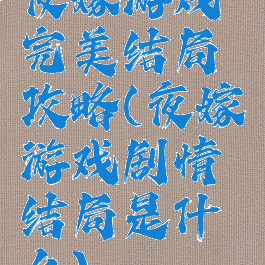 夜嫁游戏
完美结局
攻略(夜嫁
游戏剧情
结局是什
么)